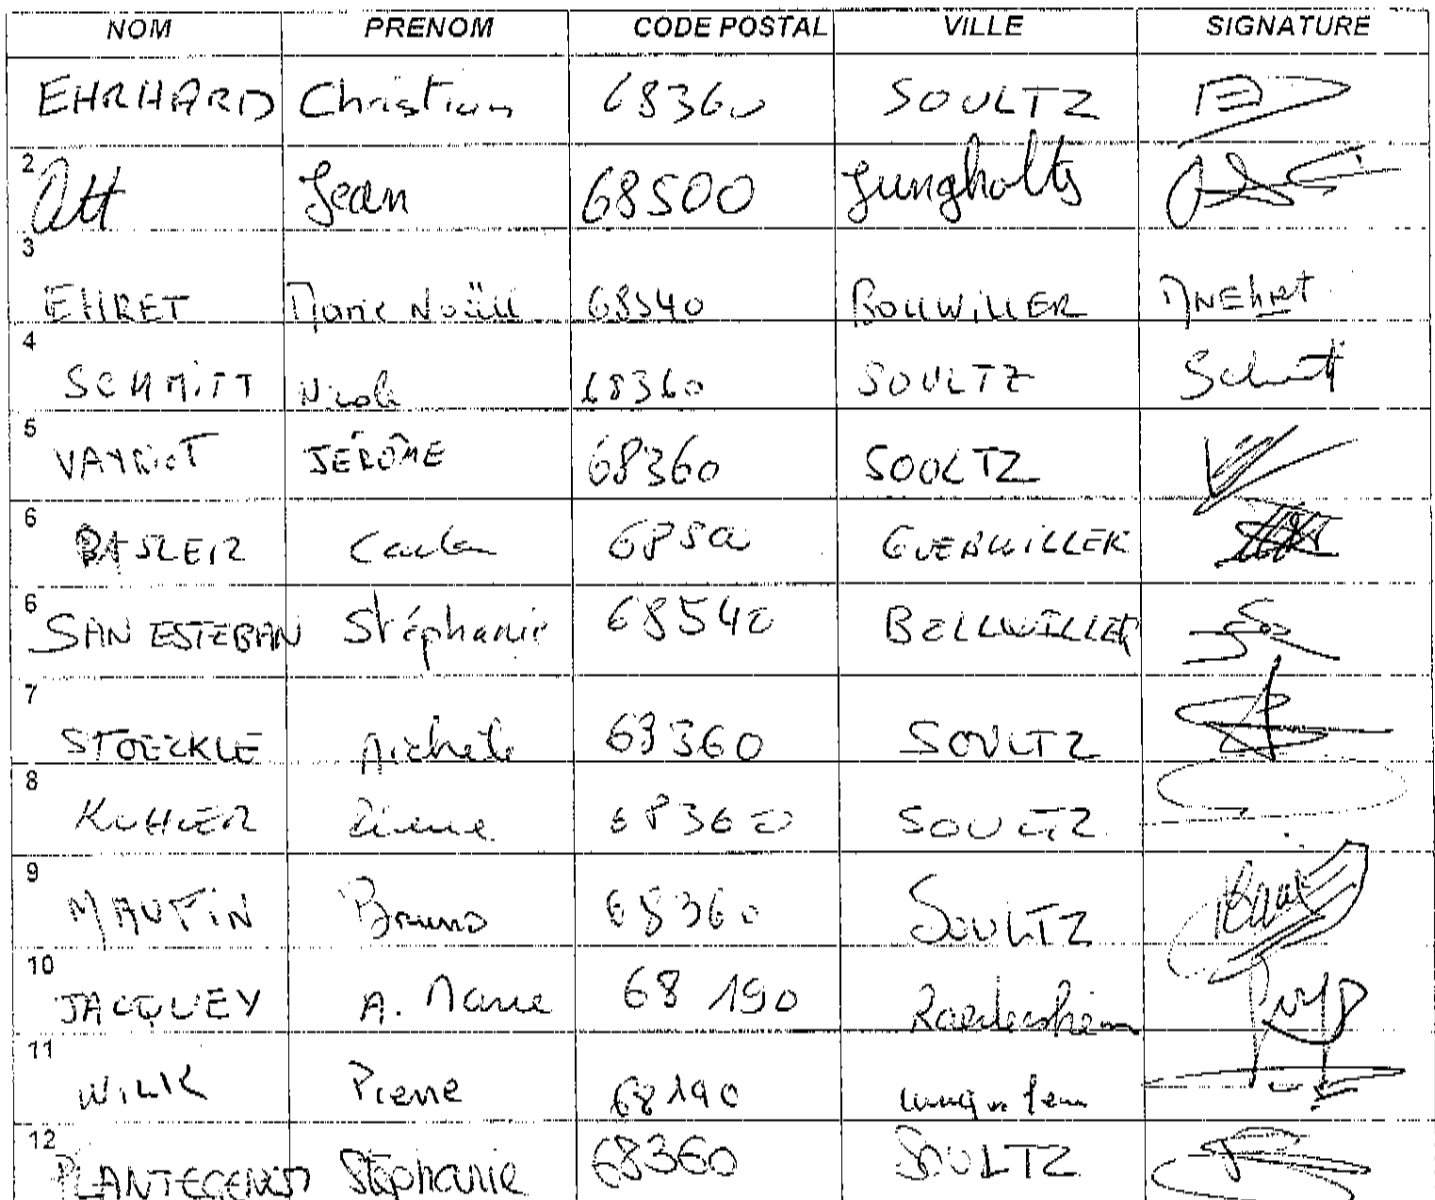 NOM PRENOM CODE POSTAL VILLE SIGNATURE
EHRHARD Christian 68360 SOULTZ
2 Ott Jean 68500 Jungholtz
3 EHRET Marie Noëll 68540 BOLLWILLER MNEhret
4 SCHMITT Nicole 68360 SOULTZ Schmitt
5 VAYRIOT JÉRÔME 68360 SOULTZ
6 BASLER 68500 GUEBWILLER
6 SAN ESTEBAN Stéphanie 68540 BOLLWILLER
7 STOECKLE Michele 68360 SOULTZ
8 KOHLER Pierre 68360 SOULTZ
9 MAUFIN Bruno 68360 SOULTZ
10 JACQUEY A. Marie 68 190 Raedersheim
11 WILLK Pierre 68190
12 Stéphanie 68360 SOULTZ